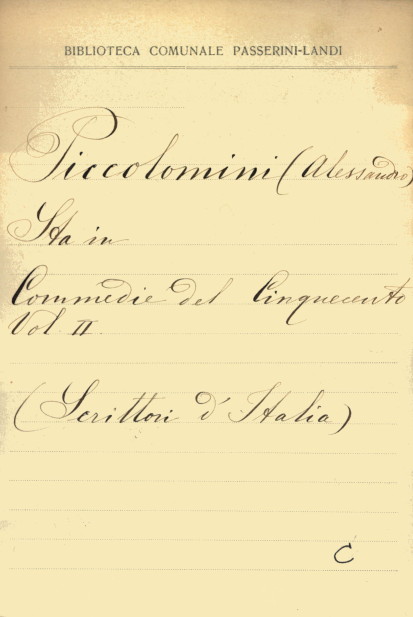 BIBLIOTECA COMUNALE PASSERINI-LANDI
Piccolomini (Alessandro)
Sta in
Commedie del Cinquecento
Vol. II.
(Scrittori d'Italia)
C